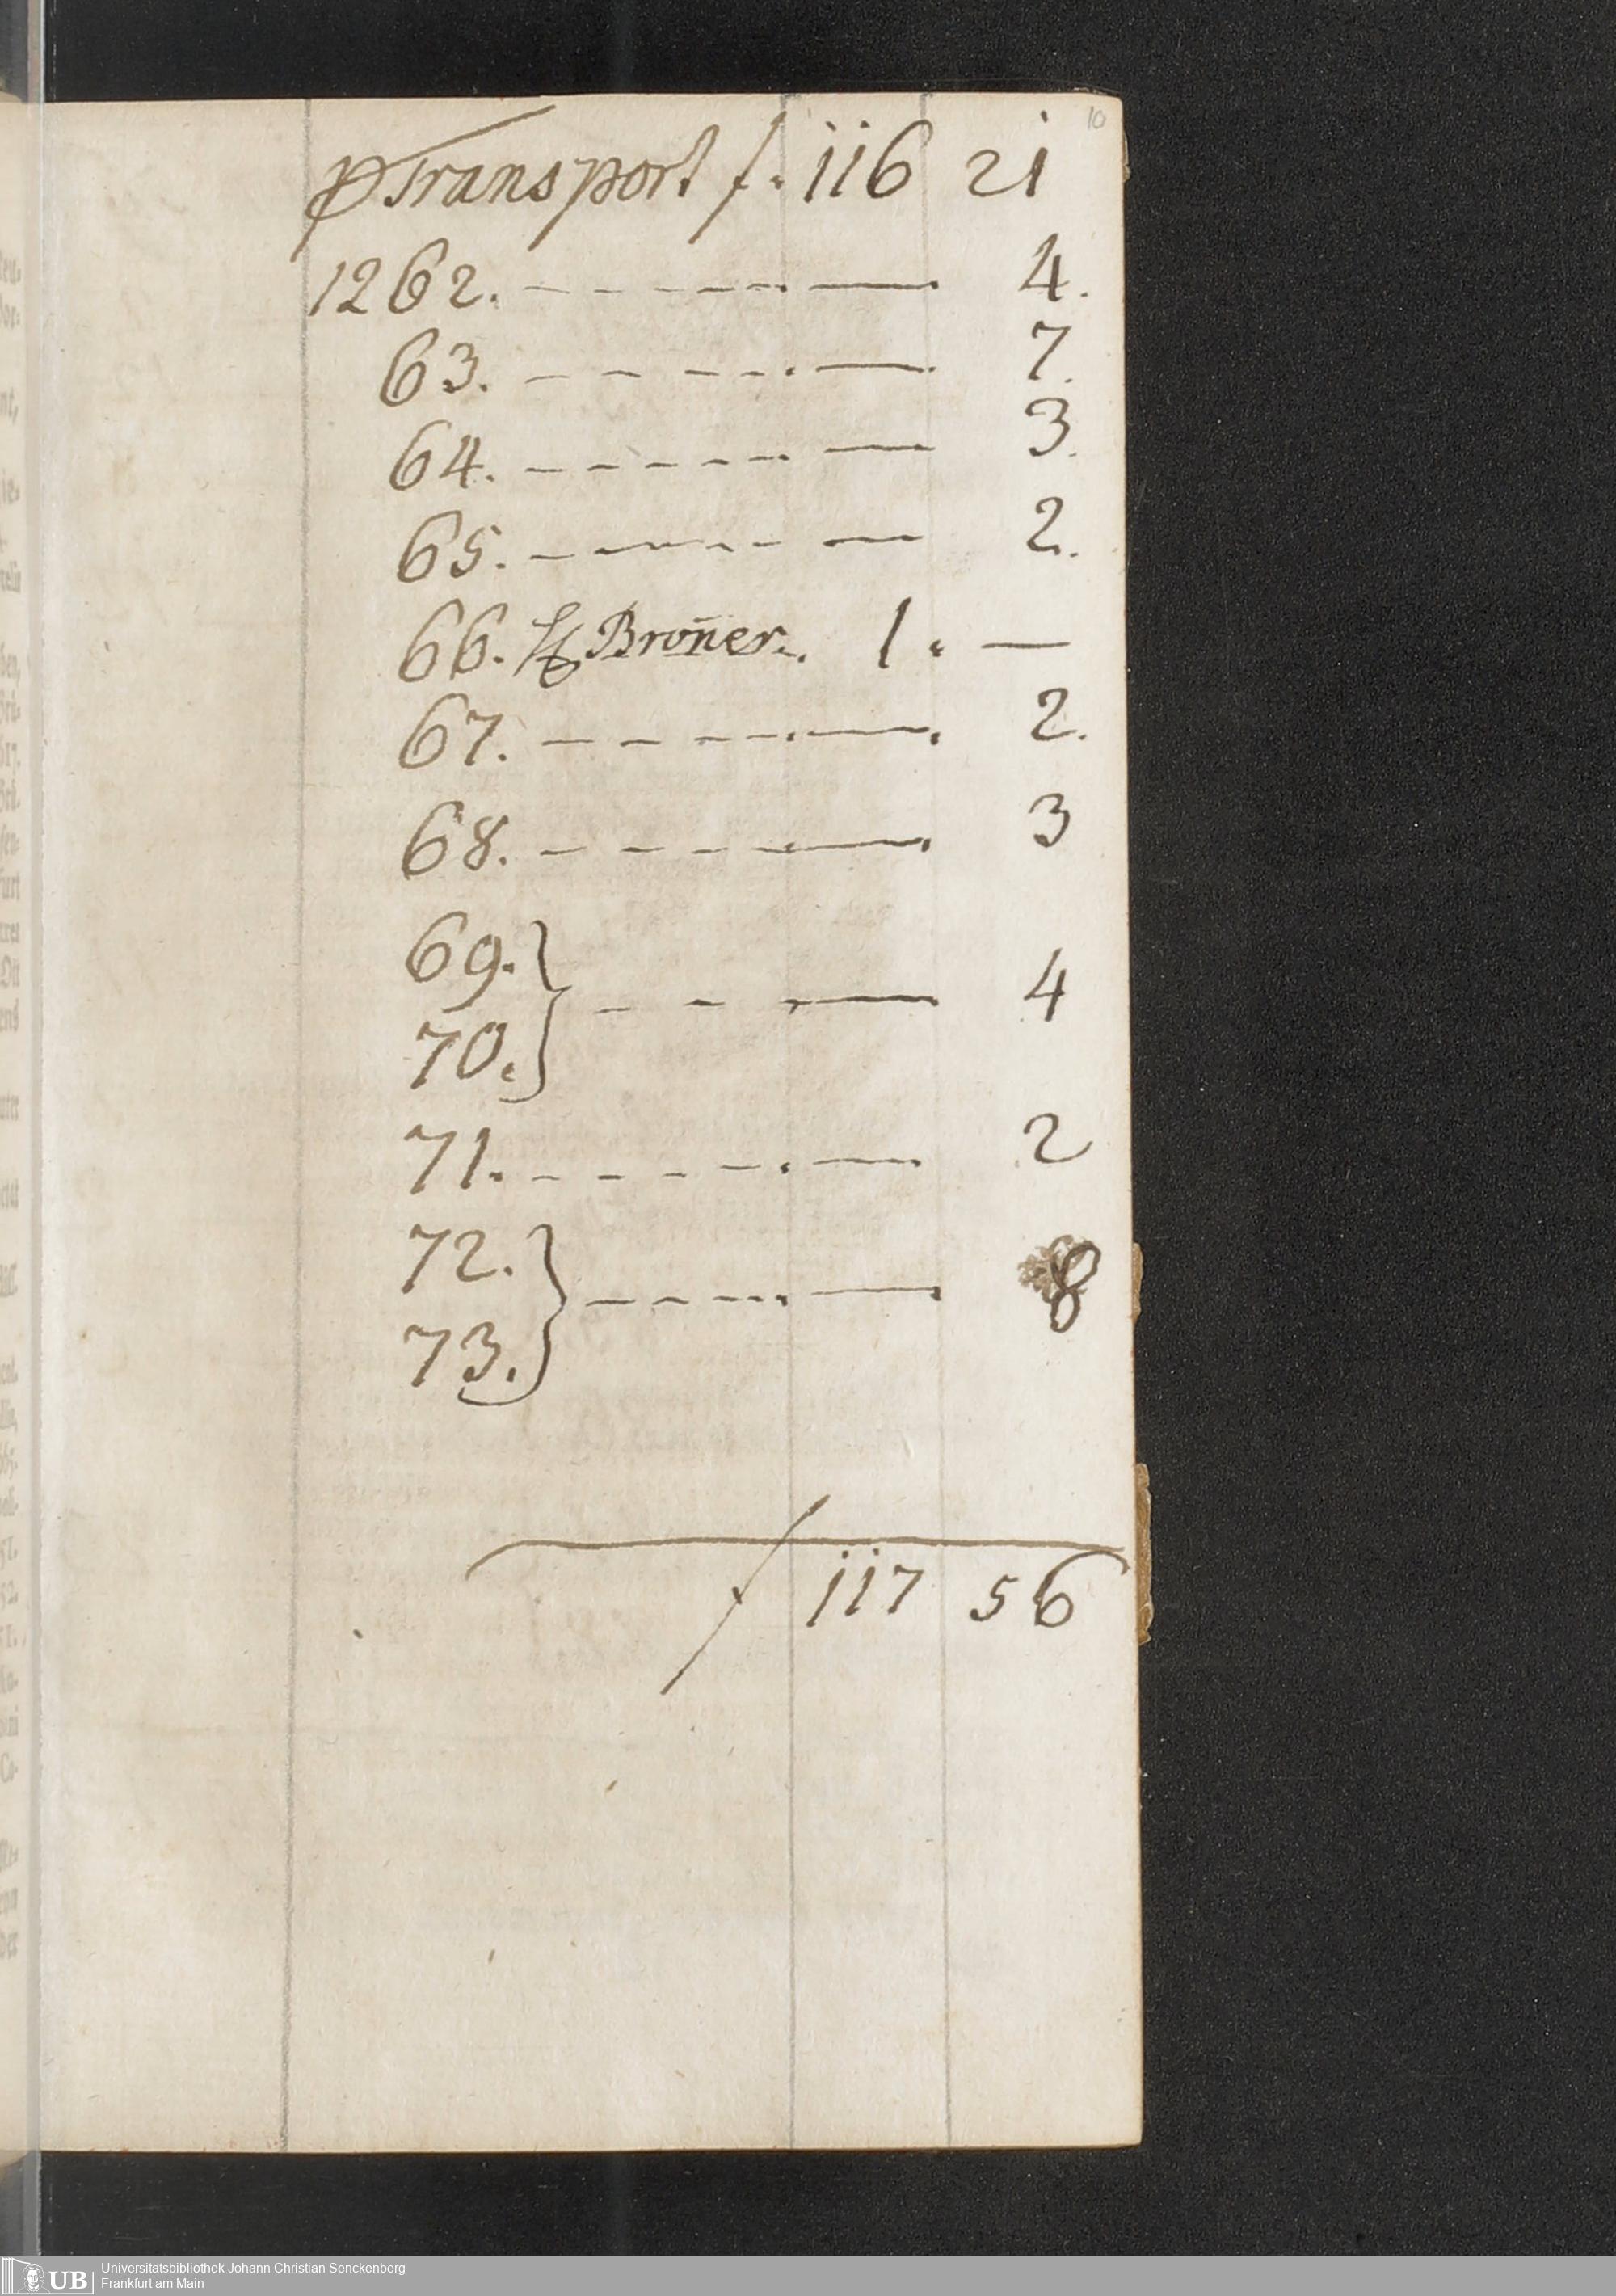 10
P Transport f. 116 21
1262. - - - - - . — 4.
63. - - - - - . — 7.
64. - - - - - — 3.
65. - - - - - — 2.
66. H Broñer. 1. —
67. - - - - - . — . 2.
68. - - - - - — . 3
69.
70. } - - - — 4
71. - - - - - . — 2
72.
73. } - - - - . — . 8
f 117 56
UB Universitätsbibliothek Johann Christian Senckenberg
Frankfurt am Main